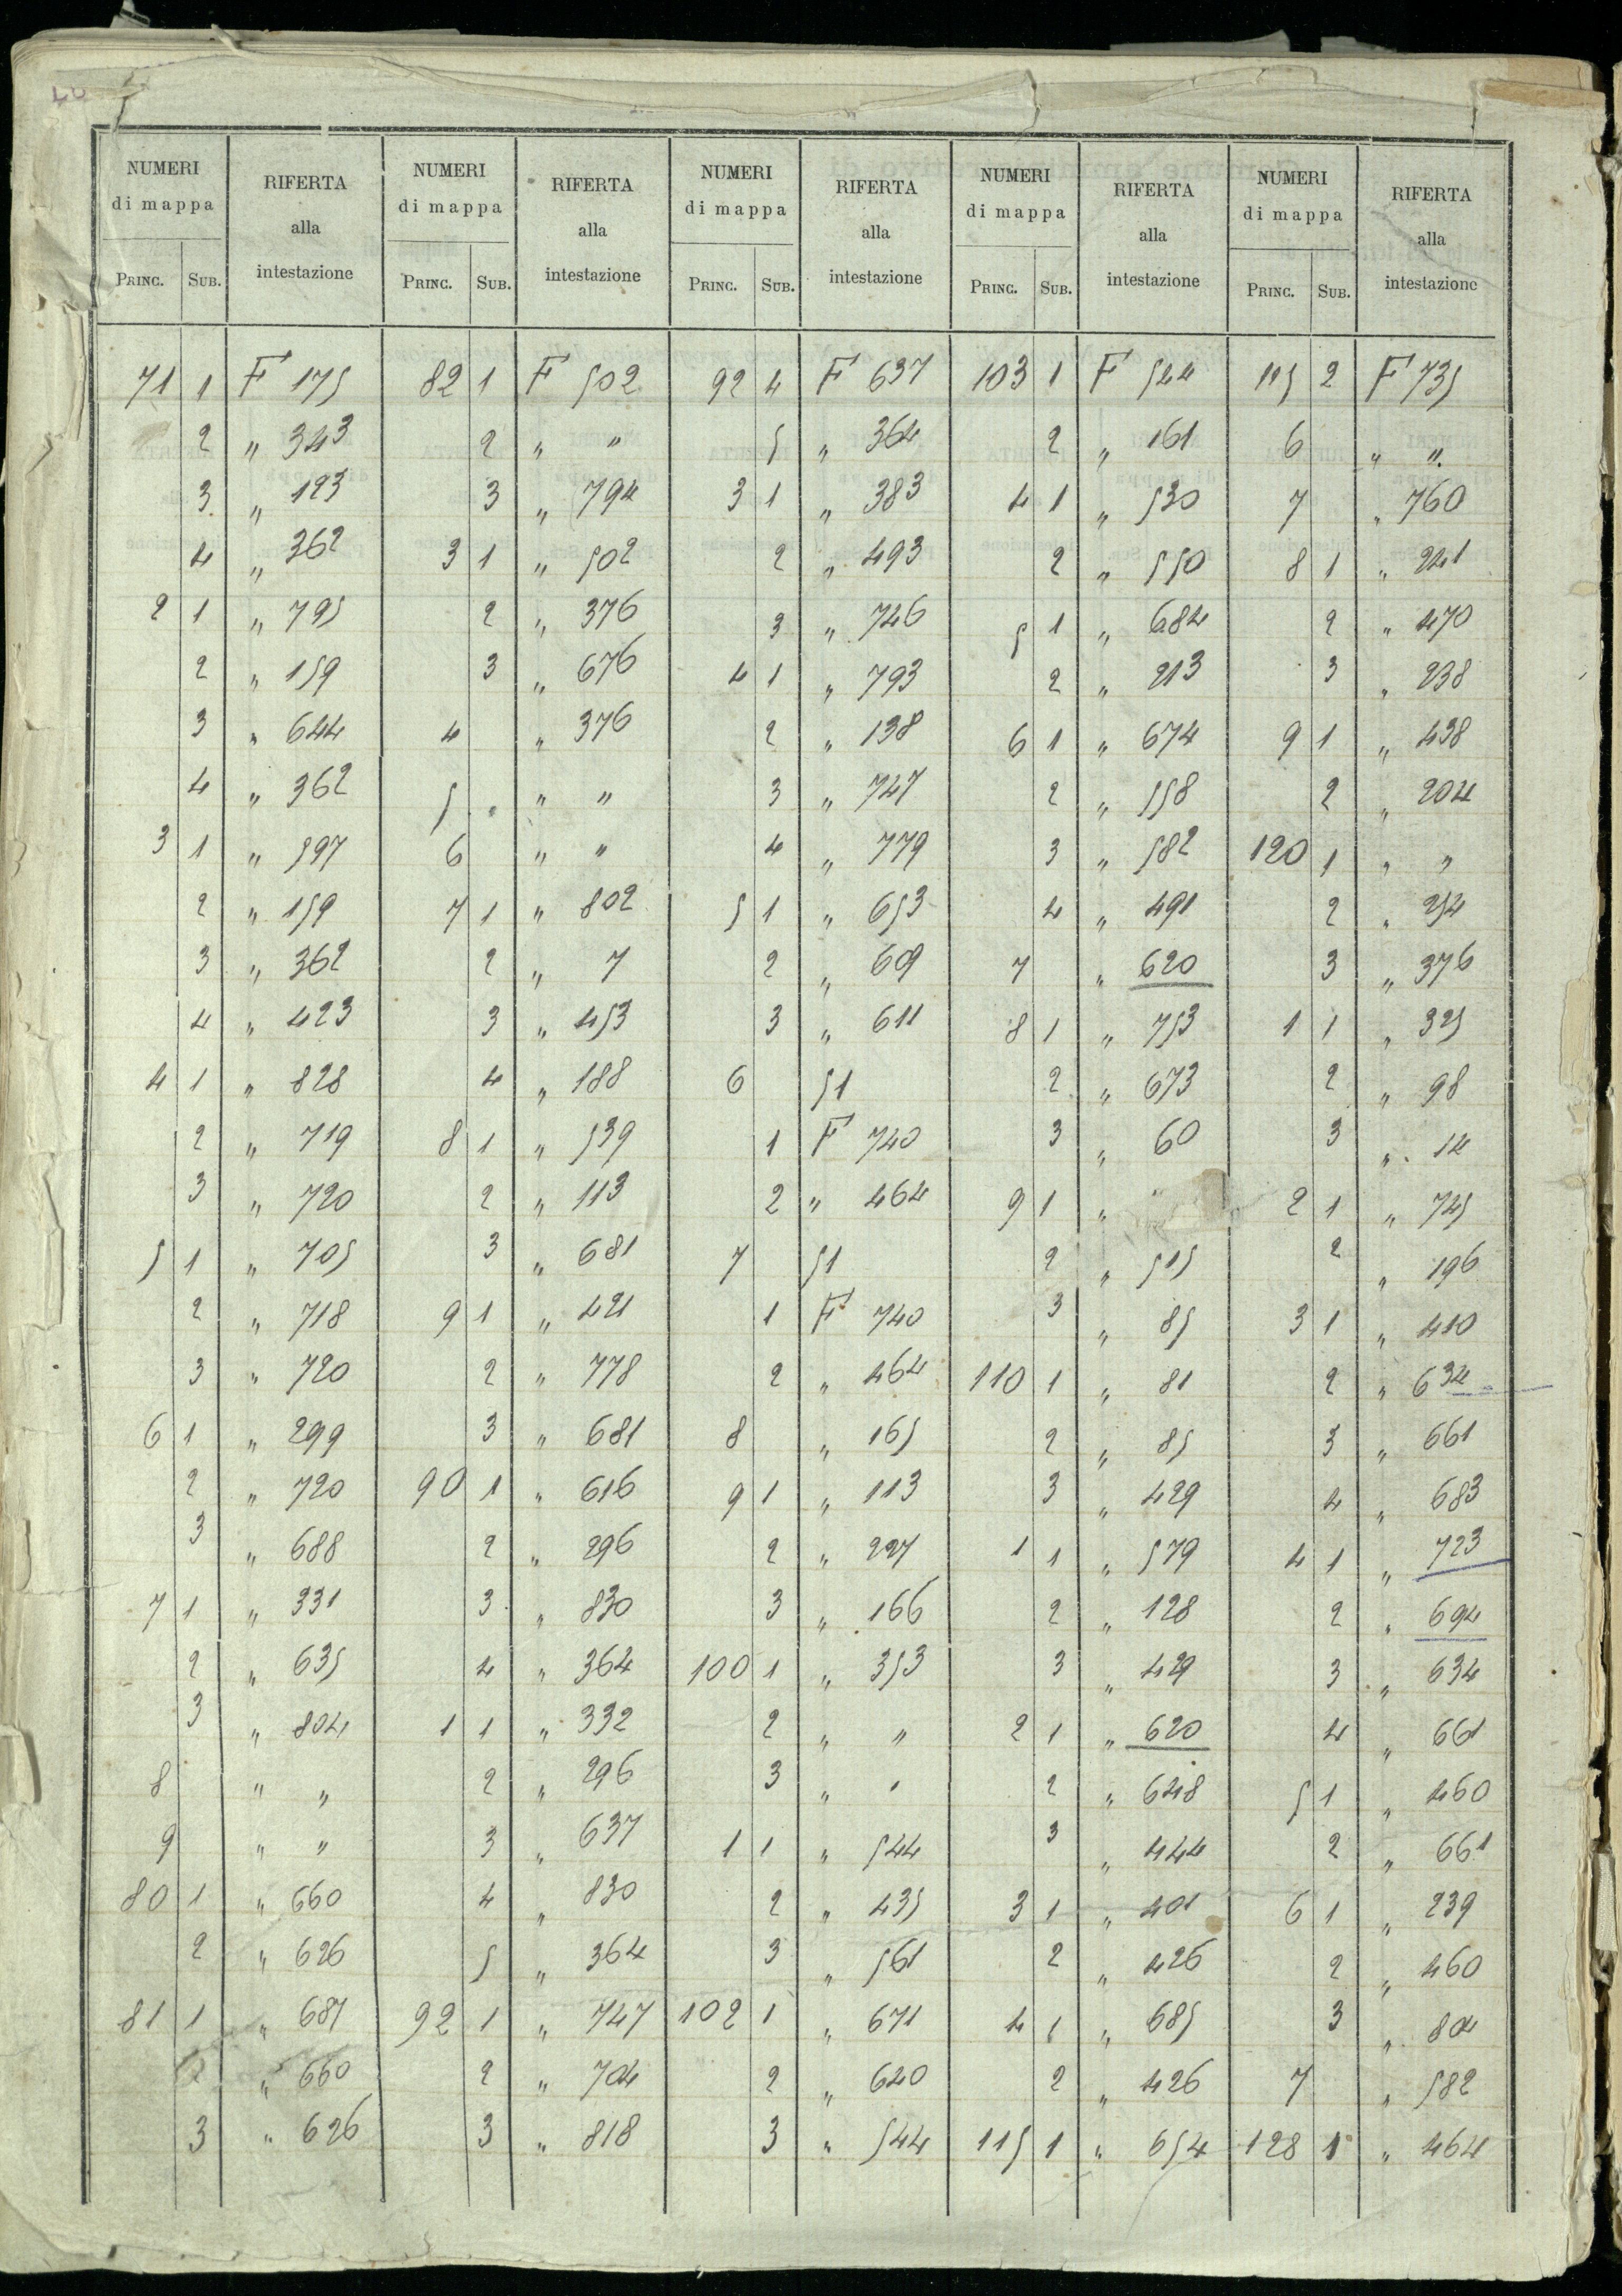 NUMERI di mappa RIFERTA alla intestazione NUMERI di mappa RIFERTA alla intestazione NUMERI di mappa RIFERTA alla intestazione NUMERI di mappa RIFERTA alla intestazione NUMERI di mappa RIFERTA alla intestazione
PRINC. SUB. PRINC. SUB. PRINC. SUB. PRINC. SUB. PRINC. SUB.
71 1 F 175 82 1 F 502 92 4 F 637 103 1 F 544 115 2 F 735
2 " 343 2 " " 5 " 364 2 " 161 6 " "
3 " 123 3 " 794 3 1 " 383 4 1 " 530 7 " 760
4 " 362 3 1 " 502 2 " 493 2 " 550 8 1 " 241
2 1 " 795 2 " 376 3 " 746 5 1 " 684 2 " 470
2 " 159 3 " 676 4 1 " 793 2 " 213 3 " 238
3 " 644 4 " 376 2 " 138 6 1 " 674 9 1 " 438
4 " 362 5 " " 3 " 747 2 " 558 2 " 204
3 1 " 597 6 " " 4 " 779 3 " 582 120 1 " "
2 " 159 7 1 " 802 5 1 " 653 4 " 491 2 " 254
3 " 362 2 " 7 2 " 609 7 " 620 3 " 376
4 " 423 3 " 453 3 " 611 8 1 " 753 1 1 " 325
4 1 " 828 4 " 188 6 51 2 " 673 2 " 98
2 " 719 8 1 " 539 1 F 740 3 " 60 3 " 14
3 " 720 2 " 113 2 " 464 9 1 " 2 1 " 745
5 1 " 705 3 " 681 7 51 2 " 515 2 " 196
2 " 718 9 1 " 421 1 F 740 3 " 85 3 1 " 410
3 " 720 2 " 778 2 " 464 110 1 " 81 2 " 634
6 1 " 299 3 " 681 8 " 165 2 " 85 3 " 661
2 " 720 90 1 " 616 9 1 " 113 3 " 429 4 " 683
3 " 688 2 " 296 2 " 227 1 1 " 579 4 1 " 723
7 1 " 331 3 " 830 3 " 166 2 " 128 2 " 694
2 " 635 4 " 364 100 1 " 353 3 " 429 3 " 634
3 " 804 1 1 " 332 2 " " 2 1 " 620 4 " 661
8 " " 2 " 296 3 " " 2 " 648 5 1 " 460
9 " " 3 " 637 1 1 " 544 3 " 444 2 " 661
80 1 " 660 4 " 830 2 " 435 3 1 " 401 6 1 " 239
2 " 626 5 " 364 3 " 561 2 " 426 2 " 460
81 1 " 687 92 1 " 747 102 1 " 671 4 1 " 685 3 " 804
2 " 660 2 " 704 2 " 640 2 " 426 7 " 582
3 " 626 3 " 818 3 " 544 115 1 " 654 128 1 " 464